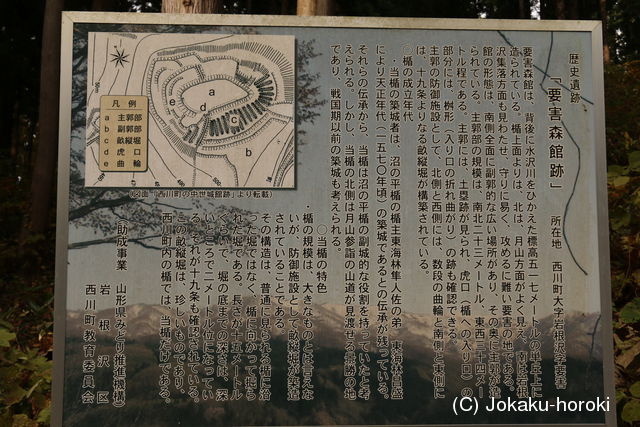 歴史遺跡
『要害森館跡』 所在地 西川町大字岩根沢字要害
要害森館は、背後に水沢川をひかえた標高五一七メートルの半丘上に
造られている。楯上面よりは、北は、月山方面がよく見え、南は岩根
沢集落方面も見わたせ、守りに易く、攻めるに難い要害の地である。
館の形態は、南側全面に副郭的な広い場所があり、その奥に主郭が造
られている。主郭部の規模は、南北二十三メートル、東西三十四メー
トル程である。主郭には、土塁跡が見られ、虎口（楯への入り口）の
部分には、桝形（入り口の折れ曲がり）の跡も確認できる。
主郭の防御施設として、北側と西側には、数段の曲輪と南側と東側に
は、十九条よりなる畝縦堀が構築されている。
〇楯の成立年代
・当楯の築城者は、沼の平楯の楯主東海林隼人佐の弟 東海林昌盛
により天正年代（一五七〇年頃）の築城であるとの伝承が残っている。
それらの伝承から、当楯は沼の平楯の副城的な役割を持っていたと考
えられる。しかし、当楯の北側は月山参詣の山道が見渡せる景勝の地
であり、戦国期以前の築城も考えられる。
〇当楯の特色
楯の規模は、大きなものとは言えな
いが、防御施設として畝縦堀が築造
されていることである。
その構造は、普通に見られる楯に沿
った堀ではなく、楯に向かって掘ら
れた堀である。長さが十五メートル
ぐらいで、堀の底までの深さは、深
いところで二メートル位になってい
る。それが十九条も確認されている。
この畝縦堀は、珍しいものであり、
西川町内の楯では、当楯だけである。
（助成事業 山形県みどり推進機構）
岩根沢区
西川町教育委員会
凡例
a 主郭部
b 副郭部
c 畝縦堀
d 虎口
e 曲輪
a
b
c
d
e
(図面「西川町の中世城館跡」より転載)
(C) Jokaku-horoki